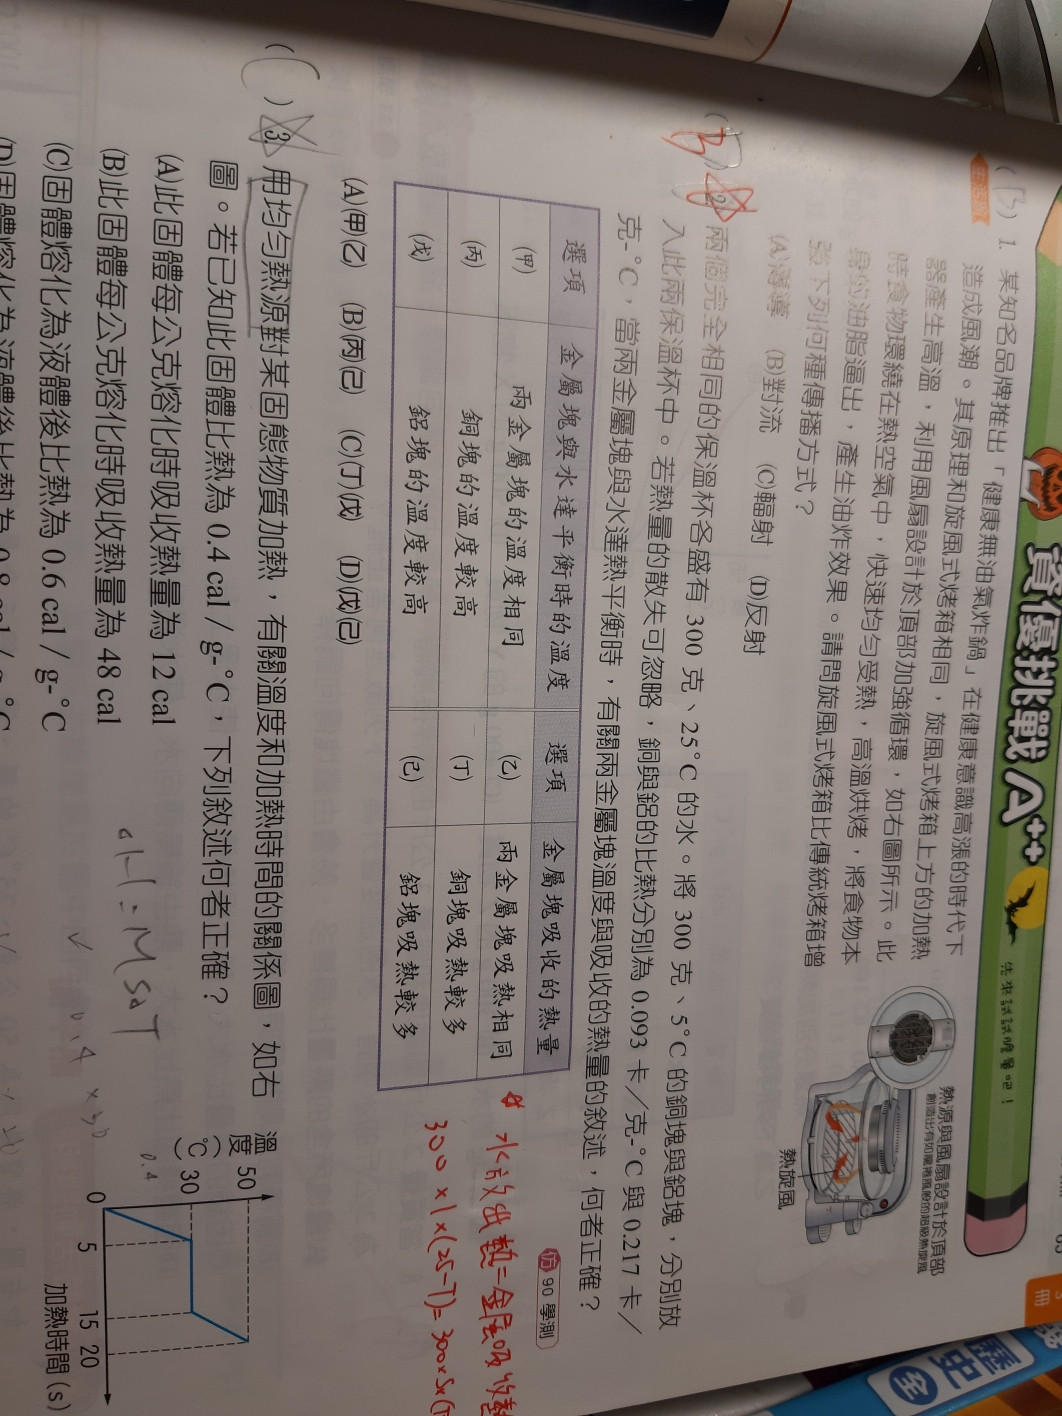 資優挑戰A++
先來試試膽量吧！
(B) 1. 某知名品牌推出「健康無油氣炸鍋」在健康意識高漲的時代下
造成風潮。其原理和旋風式烤箱相同，旋風式烤箱上方的加熱
器產生高溫，利用風扇設計於頂部加強循環，如右圖所示。此
時食物環繞在熱空氣中，快速均勻受熱，高溫烘烤，將食物本
身的油脂逼出，產生油炸效果。請問旋風式烤箱比傳統烤箱增
強下列何種傳播方式？
(A)傳導 (B)對流 (C)輻射 (D)反射
熱源與風扇設計於頂部
熱旋風
(B) 2. 兩個完全相同的保溫杯各盛有 300 克、25°C 的水。將 300 克、5°C 的銅塊與鋁塊，分別放
入此兩保溫杯中。若熱量的散失可忽略，銅與鋁的比熱分別為 0.093 卡／克-°C 與 0.217 卡／
克-°C，當兩金屬塊與水達熱平衡時，有關兩金屬塊溫度與吸收的熱量的敘述，何者正確？
仿 90 學測
選項 金屬塊與水達平衡時的溫度 選項 金屬塊吸收的熱量
(甲) 兩金屬塊的溫度相同 (乙) 兩金屬塊吸熱相同
(丙) 銅塊的溫度較高 (丁) 銅塊吸熱較多
(戊) 鋁塊的溫度較高 (己) 鋁塊吸熱較多
(A)(甲)(乙) (B)(丙)(己) (C)(丁)(戊) (D)(戊)(己)
水放出熱=金屬吸收熱
300×1×(25-T)=300×S×(T
(C) 3. 用均勻熱源對某固態物質加熱，有關溫度和加熱時間的關係圖，如右
圖。若已知此固體比熱為 0.4 cal / g-°C，下列敘述何者正確？
(A)此固體每公克熔化時吸收熱量為 12 cal
(B)此固體每公克熔化時吸收熱量為 48 cal
(C)固體熔化為液體後比熱為 0.6 cal / g-°C
(D)固體熔化為液體後比熱為 0.8 cal / g-°C
溫度(°C)
50
30
0
5 15 20
加熱時間 (s)
0.4
0.4 × 30
歷史
全
冊